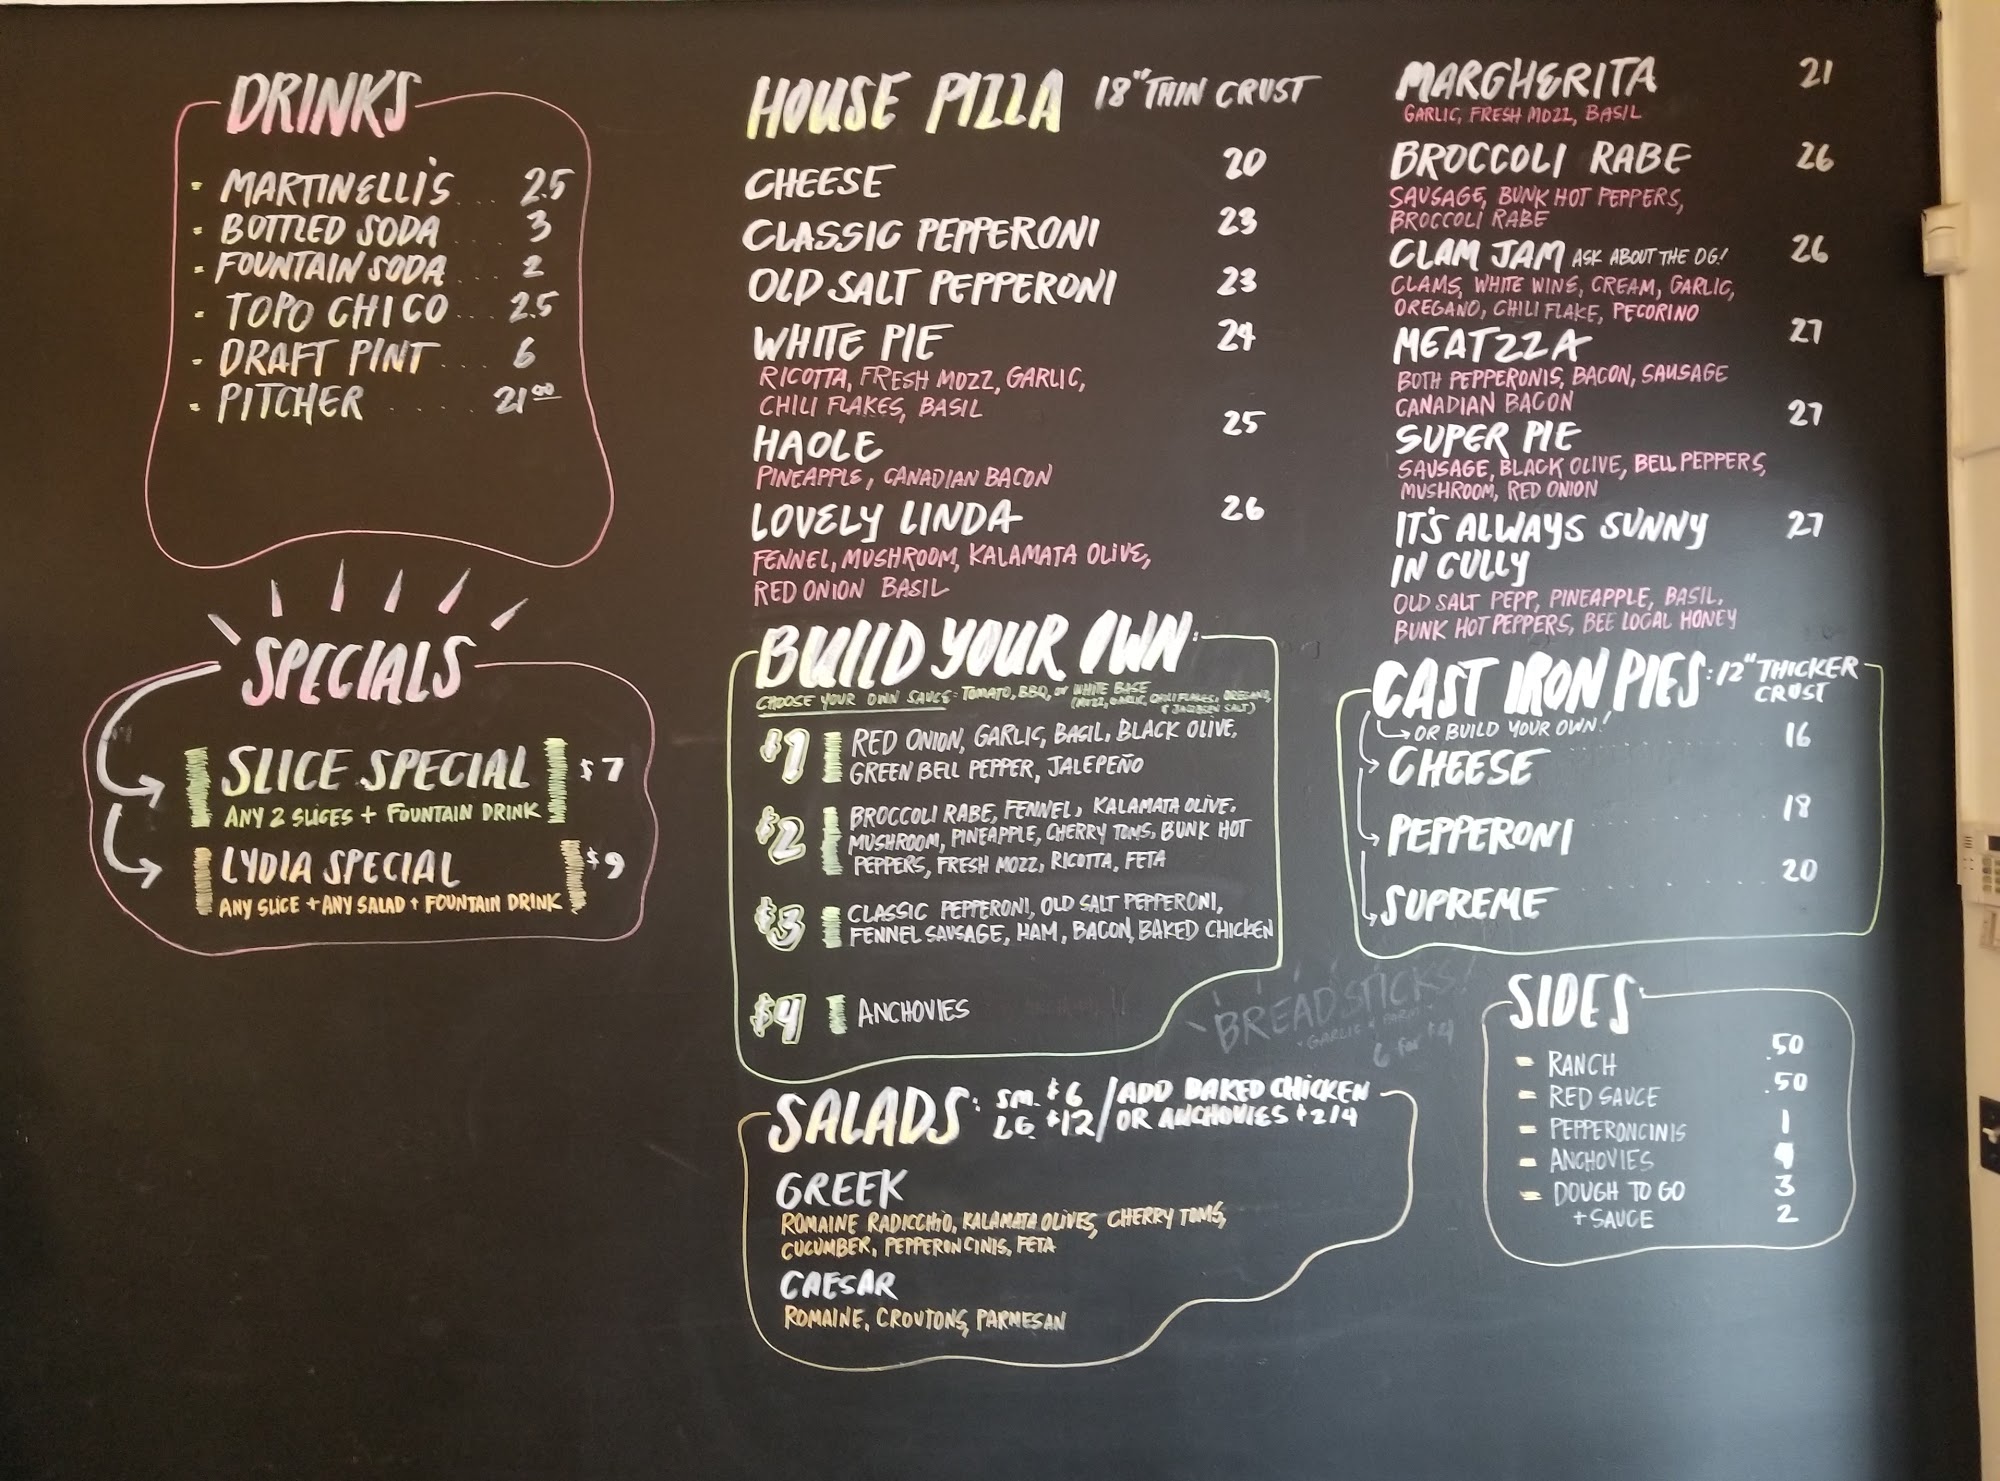 DRINKS
- MARTINELLI'S ... 2.5
- BOTTLED SODA .... 3
- FOUNTAIN SODA ... 2
- TOPO CHICO ... 2.5
- DRAFT PINT ... 6
- PITCHER ..... 21.00
SPECIALS
SLICE SPECIAL $7
ANY 2 SLICES + FOUNTAIN DRINK
LYDIA SPECIAL $9
ANY SLICE + ANY SALAD + FOUNTAIN DRINK
HOUSE PIZZA 18" THIN CRUST
CHEESE 20
CLASSIC PEPPERONI 23
OLD SALT PEPPERONI 23
WHITE PIE 24
RICOTTA, FRESH MOZZ, GARLIC,
CHILI FLAKES, BASIL
HAOLE 25
PINEAPPLE, CANADIAN BACON
LOVELY LINDA 26
FENNEL, MUSHROOM, KALAMATA OLIVE,
RED ONION BASIL
BUILD YOUR OWN:
CHOOSE YOUR OWN SAUCE: TOMATO, BBQ, or WHITE BASE
(MOZZ, GARLIC, CHILI FLAKES, OREGANO,
& JACOBSEN SALT)
$1 RED ONION, GARLIC, BASIL, BLACK OLIVE,
GREEN BELL PEPPER, JALEPEÑO
$2 BROCCOLI RABE, FENNEL, KALAMATA OLIVE,
MUSHROOM, PINEAPPLE, CHERRY TOMS, BUNK HOT
PEPPERS, FRESH MOZZ, RICOTTA, FETA
$3 CLASSIC PEPPERONI, OLD SALT PEPPERONI,
FENNEL SAUSAGE, HAM, BACON, BAKED CHICKEN
$4 ANCHOVIES
BREADSTICKS!
GARLIC + PARM
6 for $4
SALADS: SM. $6 / ADD BAKED CHICKEN
LG. $12 / OR ANCHOVIES $2/4
GREEK
ROMAINE RADICCHIO, KALAMATA OLIVES, CHERRY TOMS,
CUCUMBER, PEPPERONCINIS, FETA
CAESAR
ROMAINE, CROUTONS, PARMESAN
MARGHERITA 21
GARLIC, FRESH MOZZ, BASIL
BROCCOLI RABE 26
SAUSAGE, BUNK HOT PEPPERS,
BROCCOLI RABE
CLAM JAM ASK ABOUT THE OG! 26
CLAMS, WHITE WINE, CREAM, GARLIC,
OREGANO, CHILI FLAKE, PECORINO
MEATZZA 27
BOTH PEPPERONIS, BACON, SAUSAGE
CANADIAN BACON
SUPER PIE 27
SAUSAGE, BLACK OLIVE, BELL PEPPERS,
MUSHROOM, RED ONION
IT'S ALWAYS SUNNY 27
IN CULLY
OLD SALT PEPP, PINEAPPLE, BASIL,
BUNK HOT PEPPERS, BEE LOCAL HONEY
CAST IRON PIES: 12" THICKER
CRUST
OR BUILD YOUR OWN!
CHEESE 16
PEPPERONI 18
SUPREME 20
SIDES
- RANCH .50
- RED SAUCE .50
- PEPPERONCINIS 1
- ANCHOVIES 4
- DOUGH TO GO 3
+ SAUCE 2